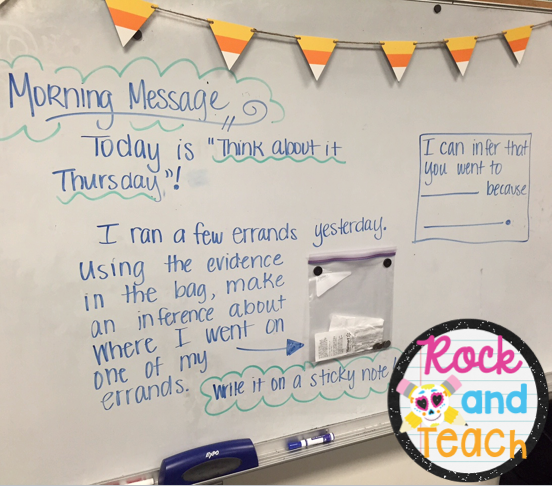 Morning Message
Today is "Think about it
Thursday"!
I ran a few errands yesterday.
Using the evidence
in the bag, make
an inference about
where I went on
one of my
errands.
Write it on a sticky note!
I can infer that
you went to
________ because
________.
EXPO
Rock
and
Teach